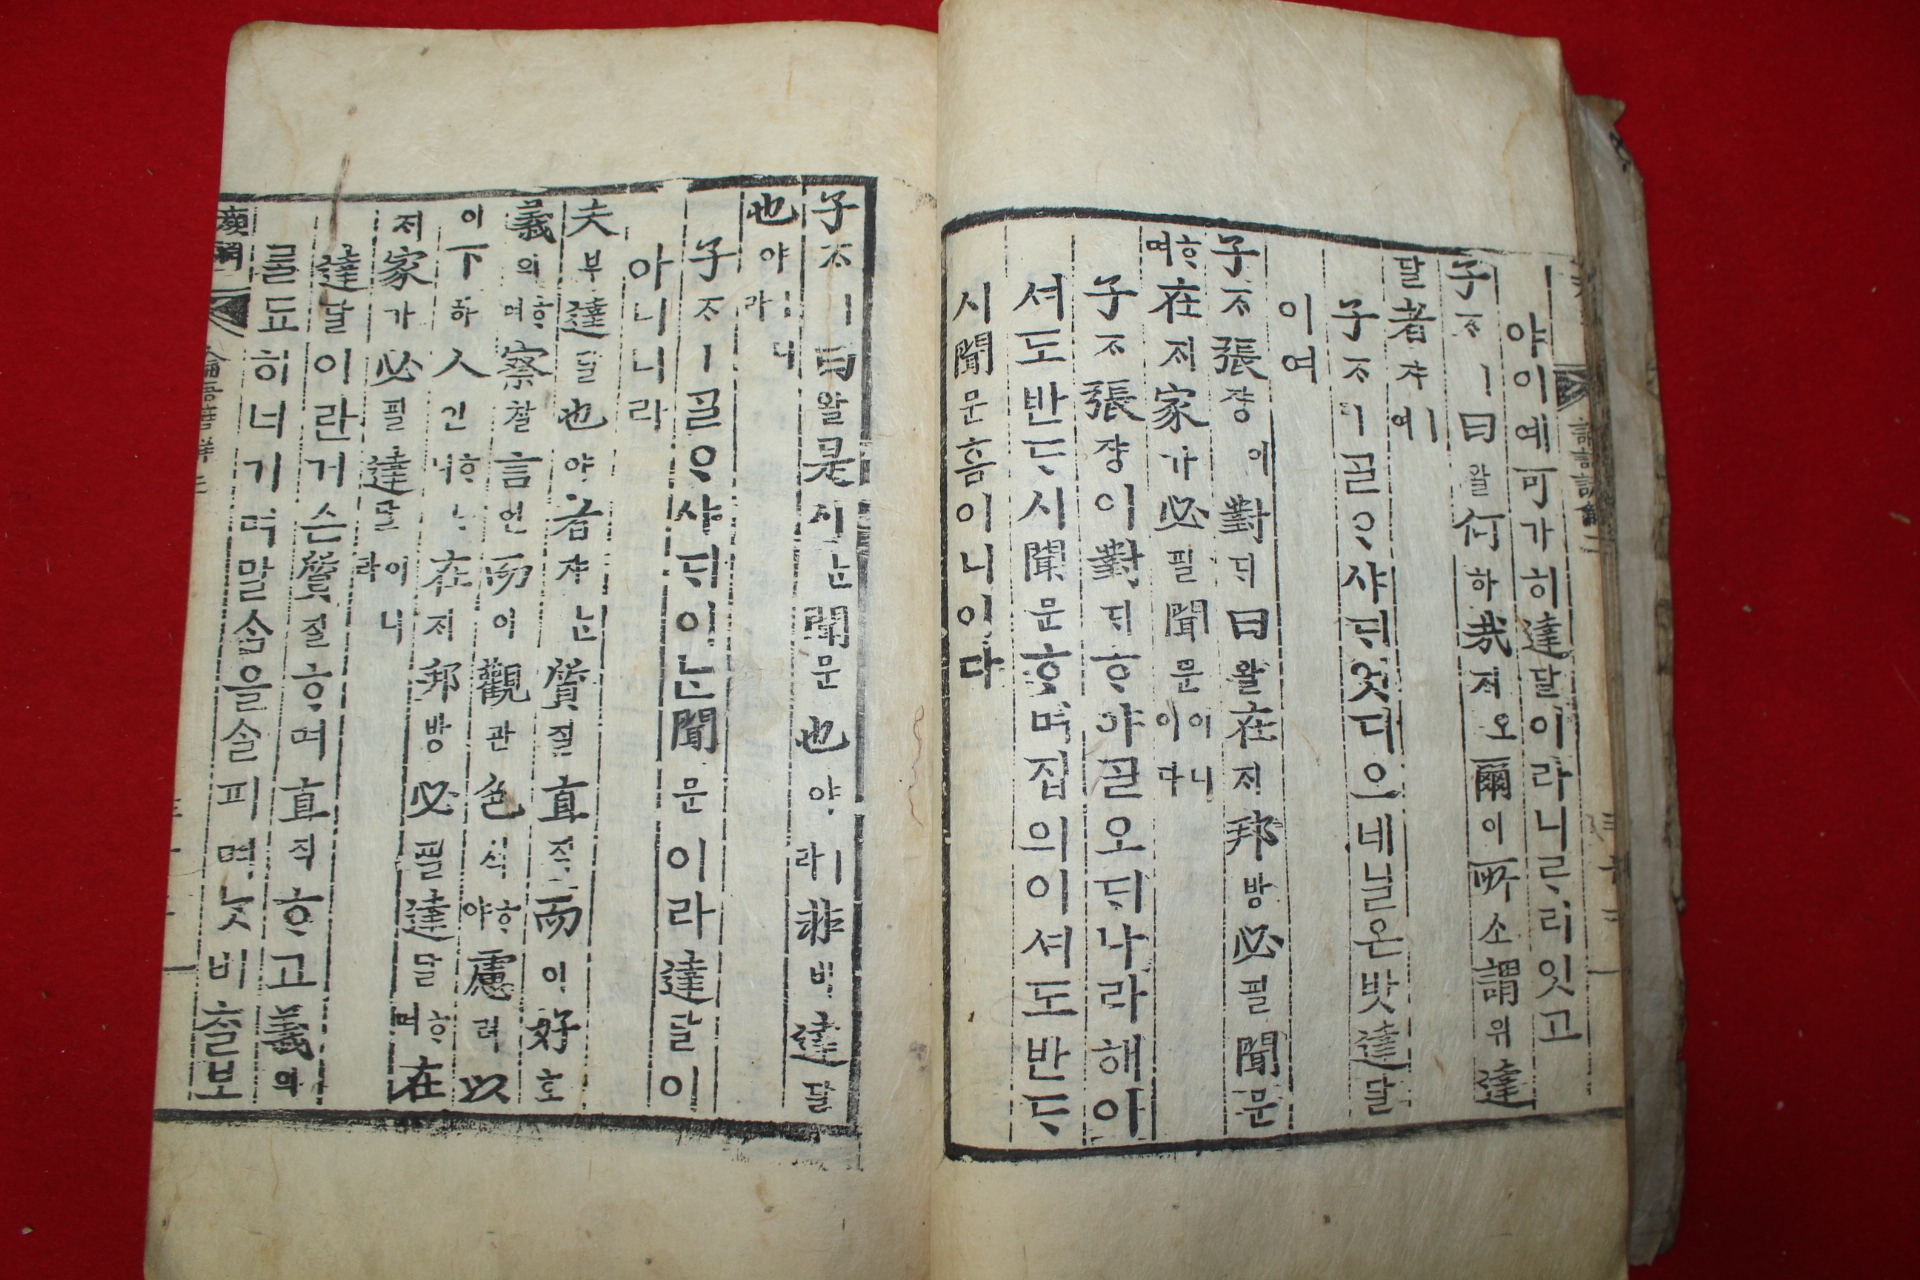 야이예可가히達달이라니ᄅᆞ리잇고
子ᄌᆞㅣ曰왈何하哉ᄌᆡ오爾이所소謂위達
달者쟈ㅣ여
子ᄌᆞㅣᄀᆞᆯᄋᆞ샤ᄃᆡ엇디오네닐온밧達달
이여
子ᄌᆞ張쟝이對ᄃᆡ曰왈在ᄌᆡ邦방必필聞문
ᄒᆞ며在ᄌᆡ家가必필聞문이니이다
子ᄌᆞ張쟝이對ᄃᆡᄒᆞ야ᄀᆞᆯ오ᄃᆡ나라해이
셔도반ᄃᆞ시聞문ᄒᆞ며집의이셔도반ᄃᆞ
시聞문홈이니이다
子ᄌᆞㅣ曰왈是시ᄂᆞᆫ聞문也야ㅣ라非비達달
也야ㅣ니라
子ᄌᆞㅣᄀᆞᆯᄋᆞ샤ᄃᆡ이ᄂᆞᆫ聞문이라達달이
아니니라
夫부達달也야者쟈ᄂᆞᆫ質질直직而이好호
義의ᄒᆞ며察찰言언而이觀관色ᄉᆡᆨᄒᆞ야慮려以
이下하人인ᄒᆞᄂᆞ니在ᄌᆡ邦방必필達달ᄒᆞ며在
ᄌᆡ家가必필達달이니라
達달이란거슨質질ᄒᆞ며直직ᄒᆞ고義의
ᄅᆞᆯ됴히너기며말ᄉᆞᆷ을ᄉᆞᆯ피며ᄂᆞᆺ비ᄎᆞᆯ보
論語諺解三